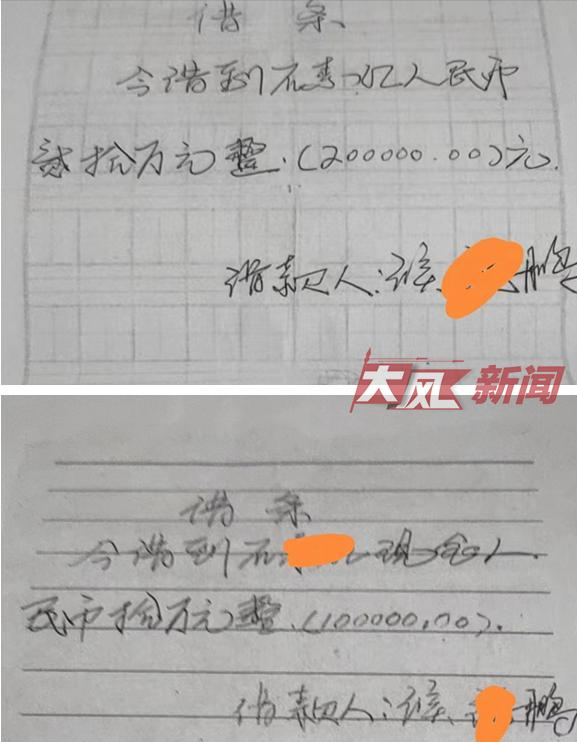 借条
今借到石人民币
贰拾万元整.(200000.00)元.
借款人:鹏
大风新闻
借条
今借到石现金人
民币拾万元整.(100000.00).
借款人:鹏